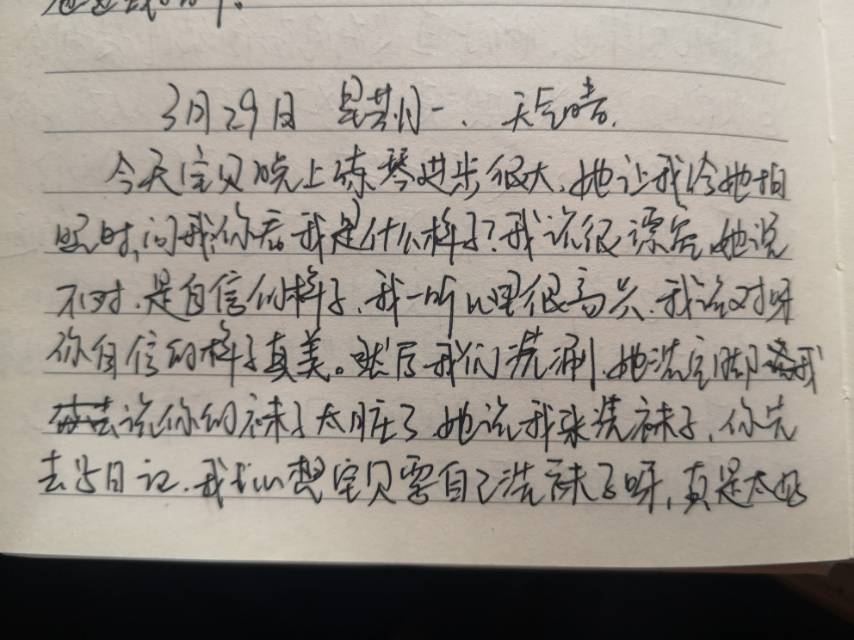 3月29日 星期一. 天气晴.
今天宝贝晚上练琴进步很大,她让我给她拍
照时,问我,你看我是什么样子?我说很漂亮,她说
不对.是自信的样子,我一听心里很高兴.我说对呀
你自信的样子真美。然后我们洗漱,她洗完脚我
说你的袜子太脏了她说我来洗袜子,你先
去写日记.我心想宝贝要自己洗袜子呀,真是太好